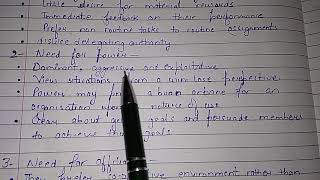 Little desire for material rewards
Immediate feedback on their performance
Prefer non routine tasks to routine assignments
dislike delegating authority
2- Need for power
Dominant, aggressive and exploitative
View situations from a win lose perspective
Power may a boon or bane for an
organisation upon nature of use
Clear about goals and persuade members
to achieve goals
3- Need for
They prefer co-operative environment rather than